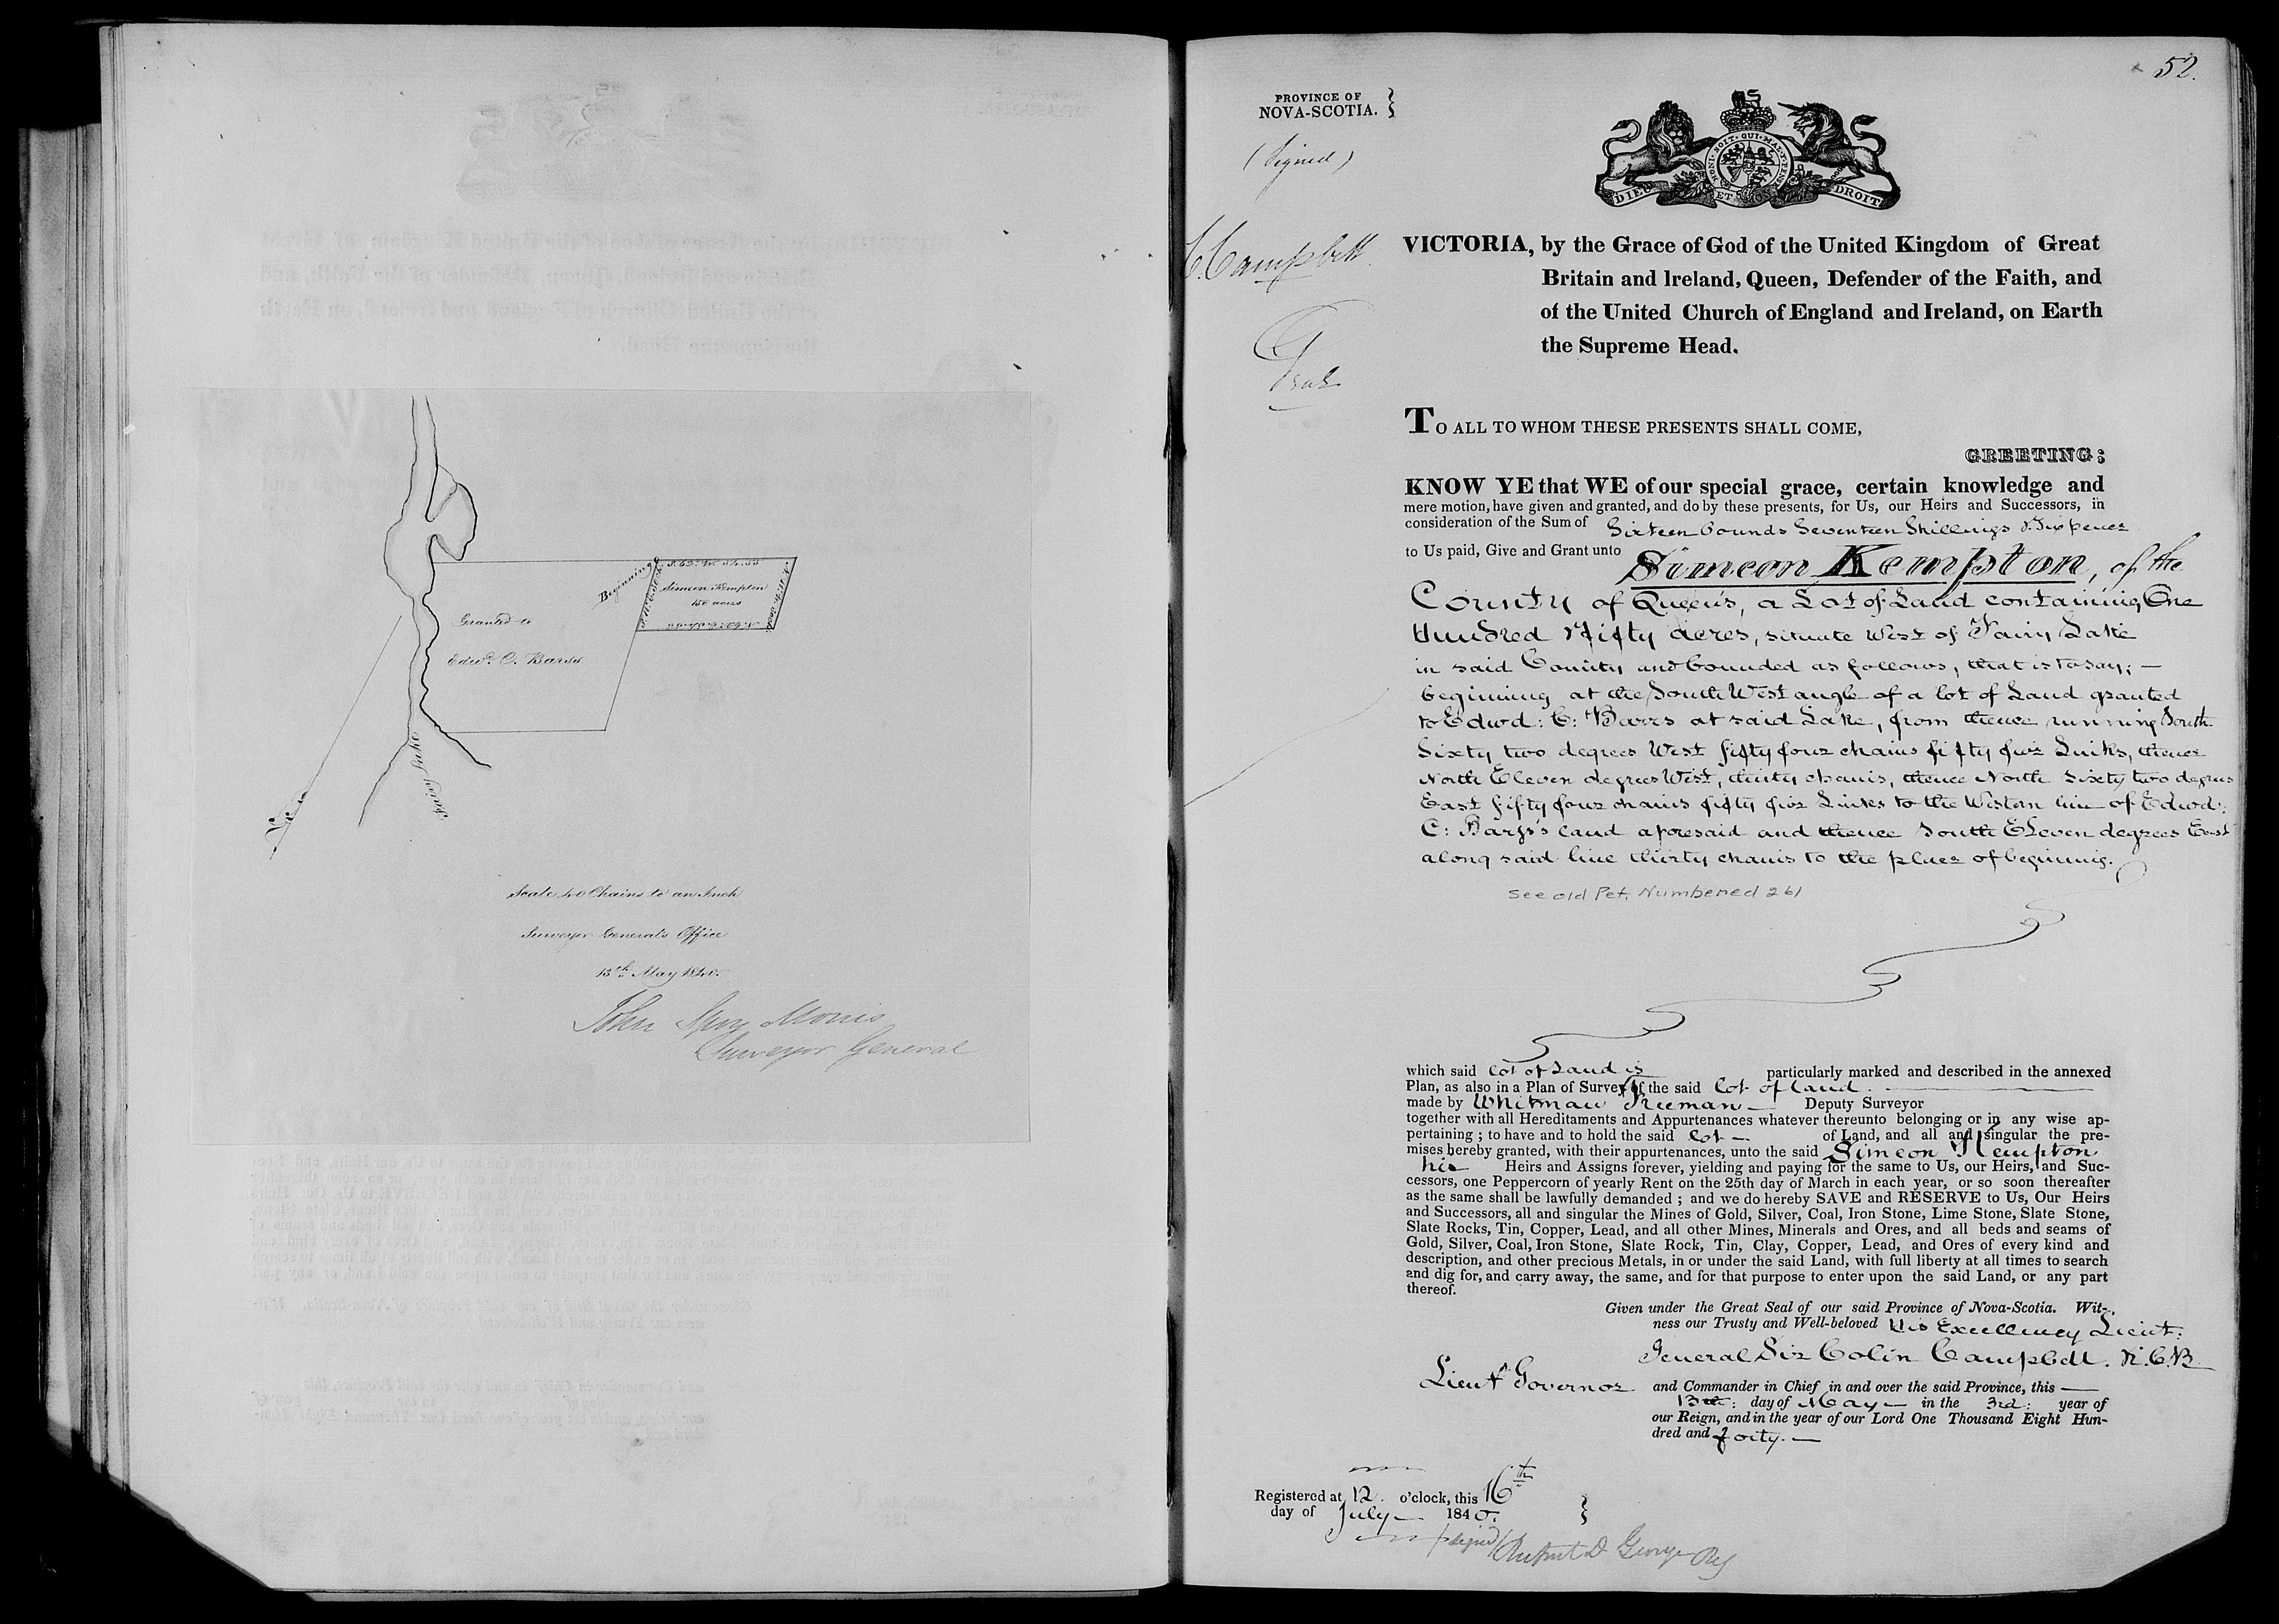 Beginning
S. 62° W. 54.55
Simeon Kempton
150 acres
Granted to
Edwd. C. Barss
Fairy Lake
Scale 40 Chains to an Inch
Surveyor General's Office
13th May 1840.
John Spry Morris
Surveyor General
52.
PROVINCE OF
NOVA-SCOTIA.
(Signed)
C. Campbell
DIEU ET MON DROIT
HONI·SOIT·QUI·MAL·Y·PENSE
VICTORIA, by the Grace of God of the United Kingdom of Great
Britain and Ireland, Queen, Defender of the Faith, and
of the United Church of England and Ireland, on Earth
the Supreme Head.
TO ALL TO WHOM THESE PRESENTS SHALL COME,
GREETING;
KNOW YE that WE of our special grace, certain knowledge and
mere motion, have given and granted, and do by these presents, for Us, our Heirs and Successors, in
consideration of the Sum of Sixteen Pounds Seventeen Shillings & Six pence
to Us paid, Give and Grant unto Simeon Kempton, of the
County of Queen's, a Lot of Land containing One
Hundred & fifty acres, situate West of Fairy Lake
in said County and bounded as follows, that is to say; —
beginning at the South West angle of a lot of Land granted
to Edwd: C: Barss at said Lake, from thence running South
Sixty two degrees West fifty four chains fifty five Links, thence
North Eleven degrees West, thirty chains, thence North Sixty two degrees
East fifty four chains fifty five Links to the Western line of Edwd:
C: Barss's land aforesaid and thence South Eleven degrees East
along said line thirty chains to the place of beginning.
See old Pet. Numbered 261
which said lot of Land is particularly marked and described in the annexed
Plan, as also in a Plan of Survey of the said lot of land
made by Whitman Freeman — Deputy Surveyor
together with all Hereditaments and Appurtenances whatever thereunto belonging or in any wise ap-
pertaining ; to have and to hold the said lot — of Land, and all and singular the pre-
mises hereby granted, with their appurtenances, unto the said Simeon Kempton
his Heirs and Assigns forever, yielding and paying for the same to Us, our Heirs, and Suc-
cessors, one Peppercorn of yearly Rent on the 25th day of March in each year, or so soon thereafter
as the same shall be lawfully demanded ; and we do hereby SAVE and RESERVE to Us, Our Heirs
and Successors, all and singular the Mines of Gold, Silver, Coal, Iron Stone, Lime Stone, Slate Stone,
Slate Rocks, Tin, Copper, Lead, and all other Mines, Minerals and Ores, and all beds and seams of
Gold, Silver, Coal, Iron Stone, Slate Rock, Tin, Clay, Copper, Lead, and Ores of every kind and
description, and other precious Metals, in or under the said Land, with full liberty at all times to search
and dig for, and carry away, the same, and for that purpose to enter upon the said Land, or any part
thereof.
Given under the Great Seal of our said Province of Nova-Scotia. Wit-
ness our Trusty and Well-beloved His Excellency Lieut:
General Sir Colin Campbell. K.C.B
Lieut Governor and Commander in Chief in and over the said Province, this —
13th: day of May — in the 3rd: year of
our Reign, and in the year of our Lord One Thousand Eight Hun-
dred and forty. —
Registered at 12. o'clock, this 16th
day of July — 1840.
(signed) Rupert D George Reg